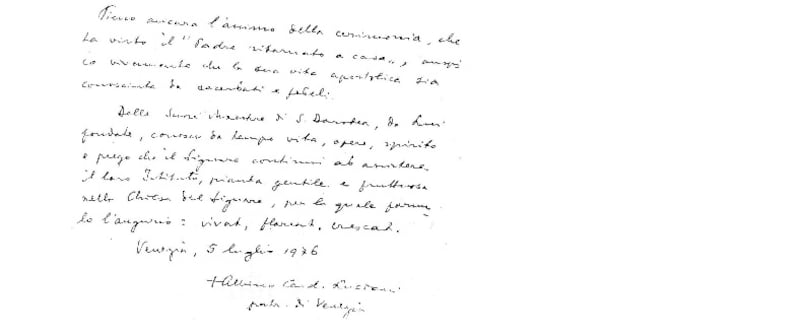 Pieno ancora l'animo della cerimonia, che
ha visto il "Padre ritornato a casa", auspi
co vivamente che la sua vita apostolica sia
conosciuta da sacerdoti e fedeli.
Delle Suore Maestre di S. Dorotea, da Lui
fondate, conosco da tempo vita, opere, spirito
e prego che il Signore continui ad assistere
il loro Istituto, pianta gentile e fruttuosa
nella Chiesa del Signore, per la quale formu
lo l'augurio: vivat, floreat, crescat.
Venezia, 5 luglio 1976
+ Albino Card. Luciani
patr. di Venezia